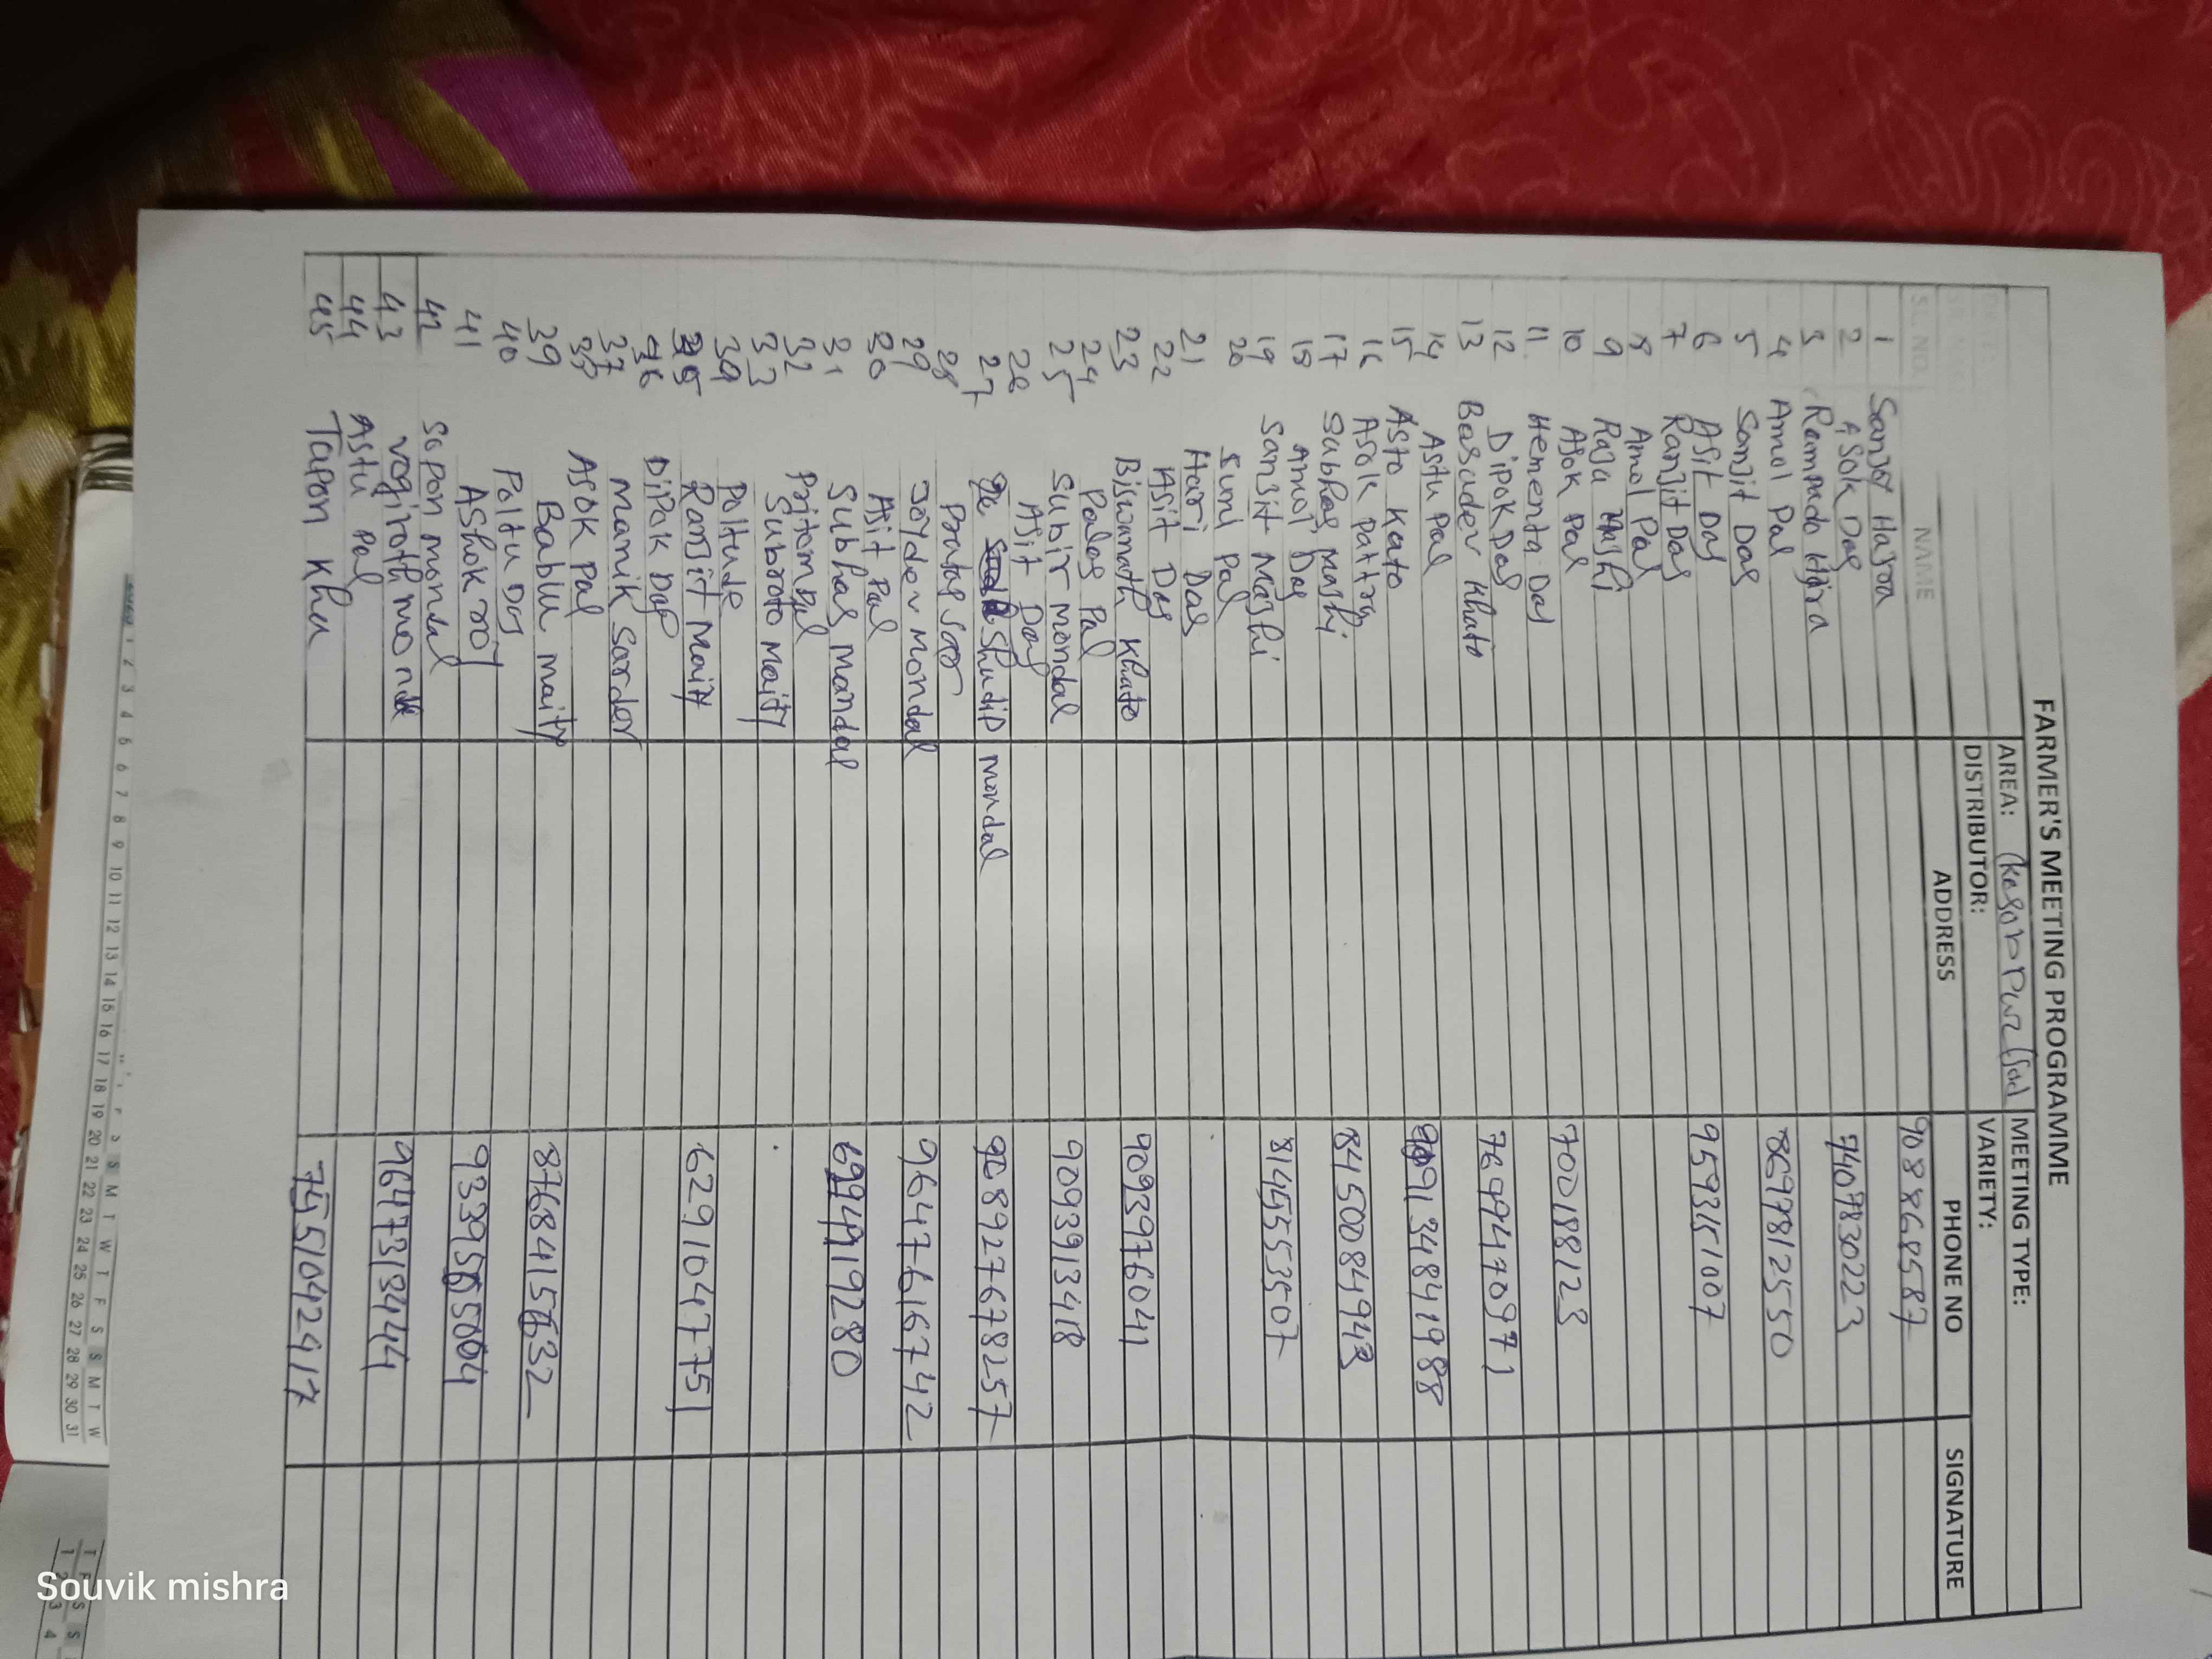 FARMER'S MEETING PROGRAMME
AREA: Kesobpur MEETING TYPE:
DISTRIBUTOR: VARIETY:
SL. NO. NAME ADDRESS PHONE NO SIGNATURE
1 Sanjoy Hajra 9088868587
2 Asok Das
3 Rampado Hajra 7407830223
4 Amol Pal
5 Sonjit Das 8697812550
6 Asit Das
7 Ranjit Das 9593151007
8 Amol Pal
9 Raju Mashi
10 Asok Pal
11. Hementa Das 700188123
12 Dipok Das
13 Basudev Khato 7699470971
14 Astu Pal
15 Asto Kato 9091348419 88
16 Asok Pattry
17 Subhas Mashi 8450084943
18 Amol Das
19 Sanjit Mashi 8145553507
20 Suni Pal
21 Hari Das
22 Asit Das
23 Biswanath Khato 9093976041
24 Palas Pal
25 Subir Mondal 9093913418
26 Asit Das
27 Shudip Mondal 908927678257
28
29 Joydev Mondal 9647616742
30 Asit Pal
31 Subhas Mandal 694919280
32 Pritom Pal
33 Suboroto Maity
34 Poltude
35 Ranjit Maity 6291047751
36 Dipok Das
37 Manik Sardar
38 Asok Pal
39 Bablu Maity 8768415632
40 Poltu Das
41 Ashok roy 9339565004
42 Sopon mondal
43 9647313444
44 Astu Pal
45 Tapon Khu 7551042917
2 3 4 5 6 7 8 9 10 11 12 13 14 15 16 17 18 19 20 21 22 23 24 25 26 27 28 29 30 31
S M T W T F S S M T W
Souvik mishra